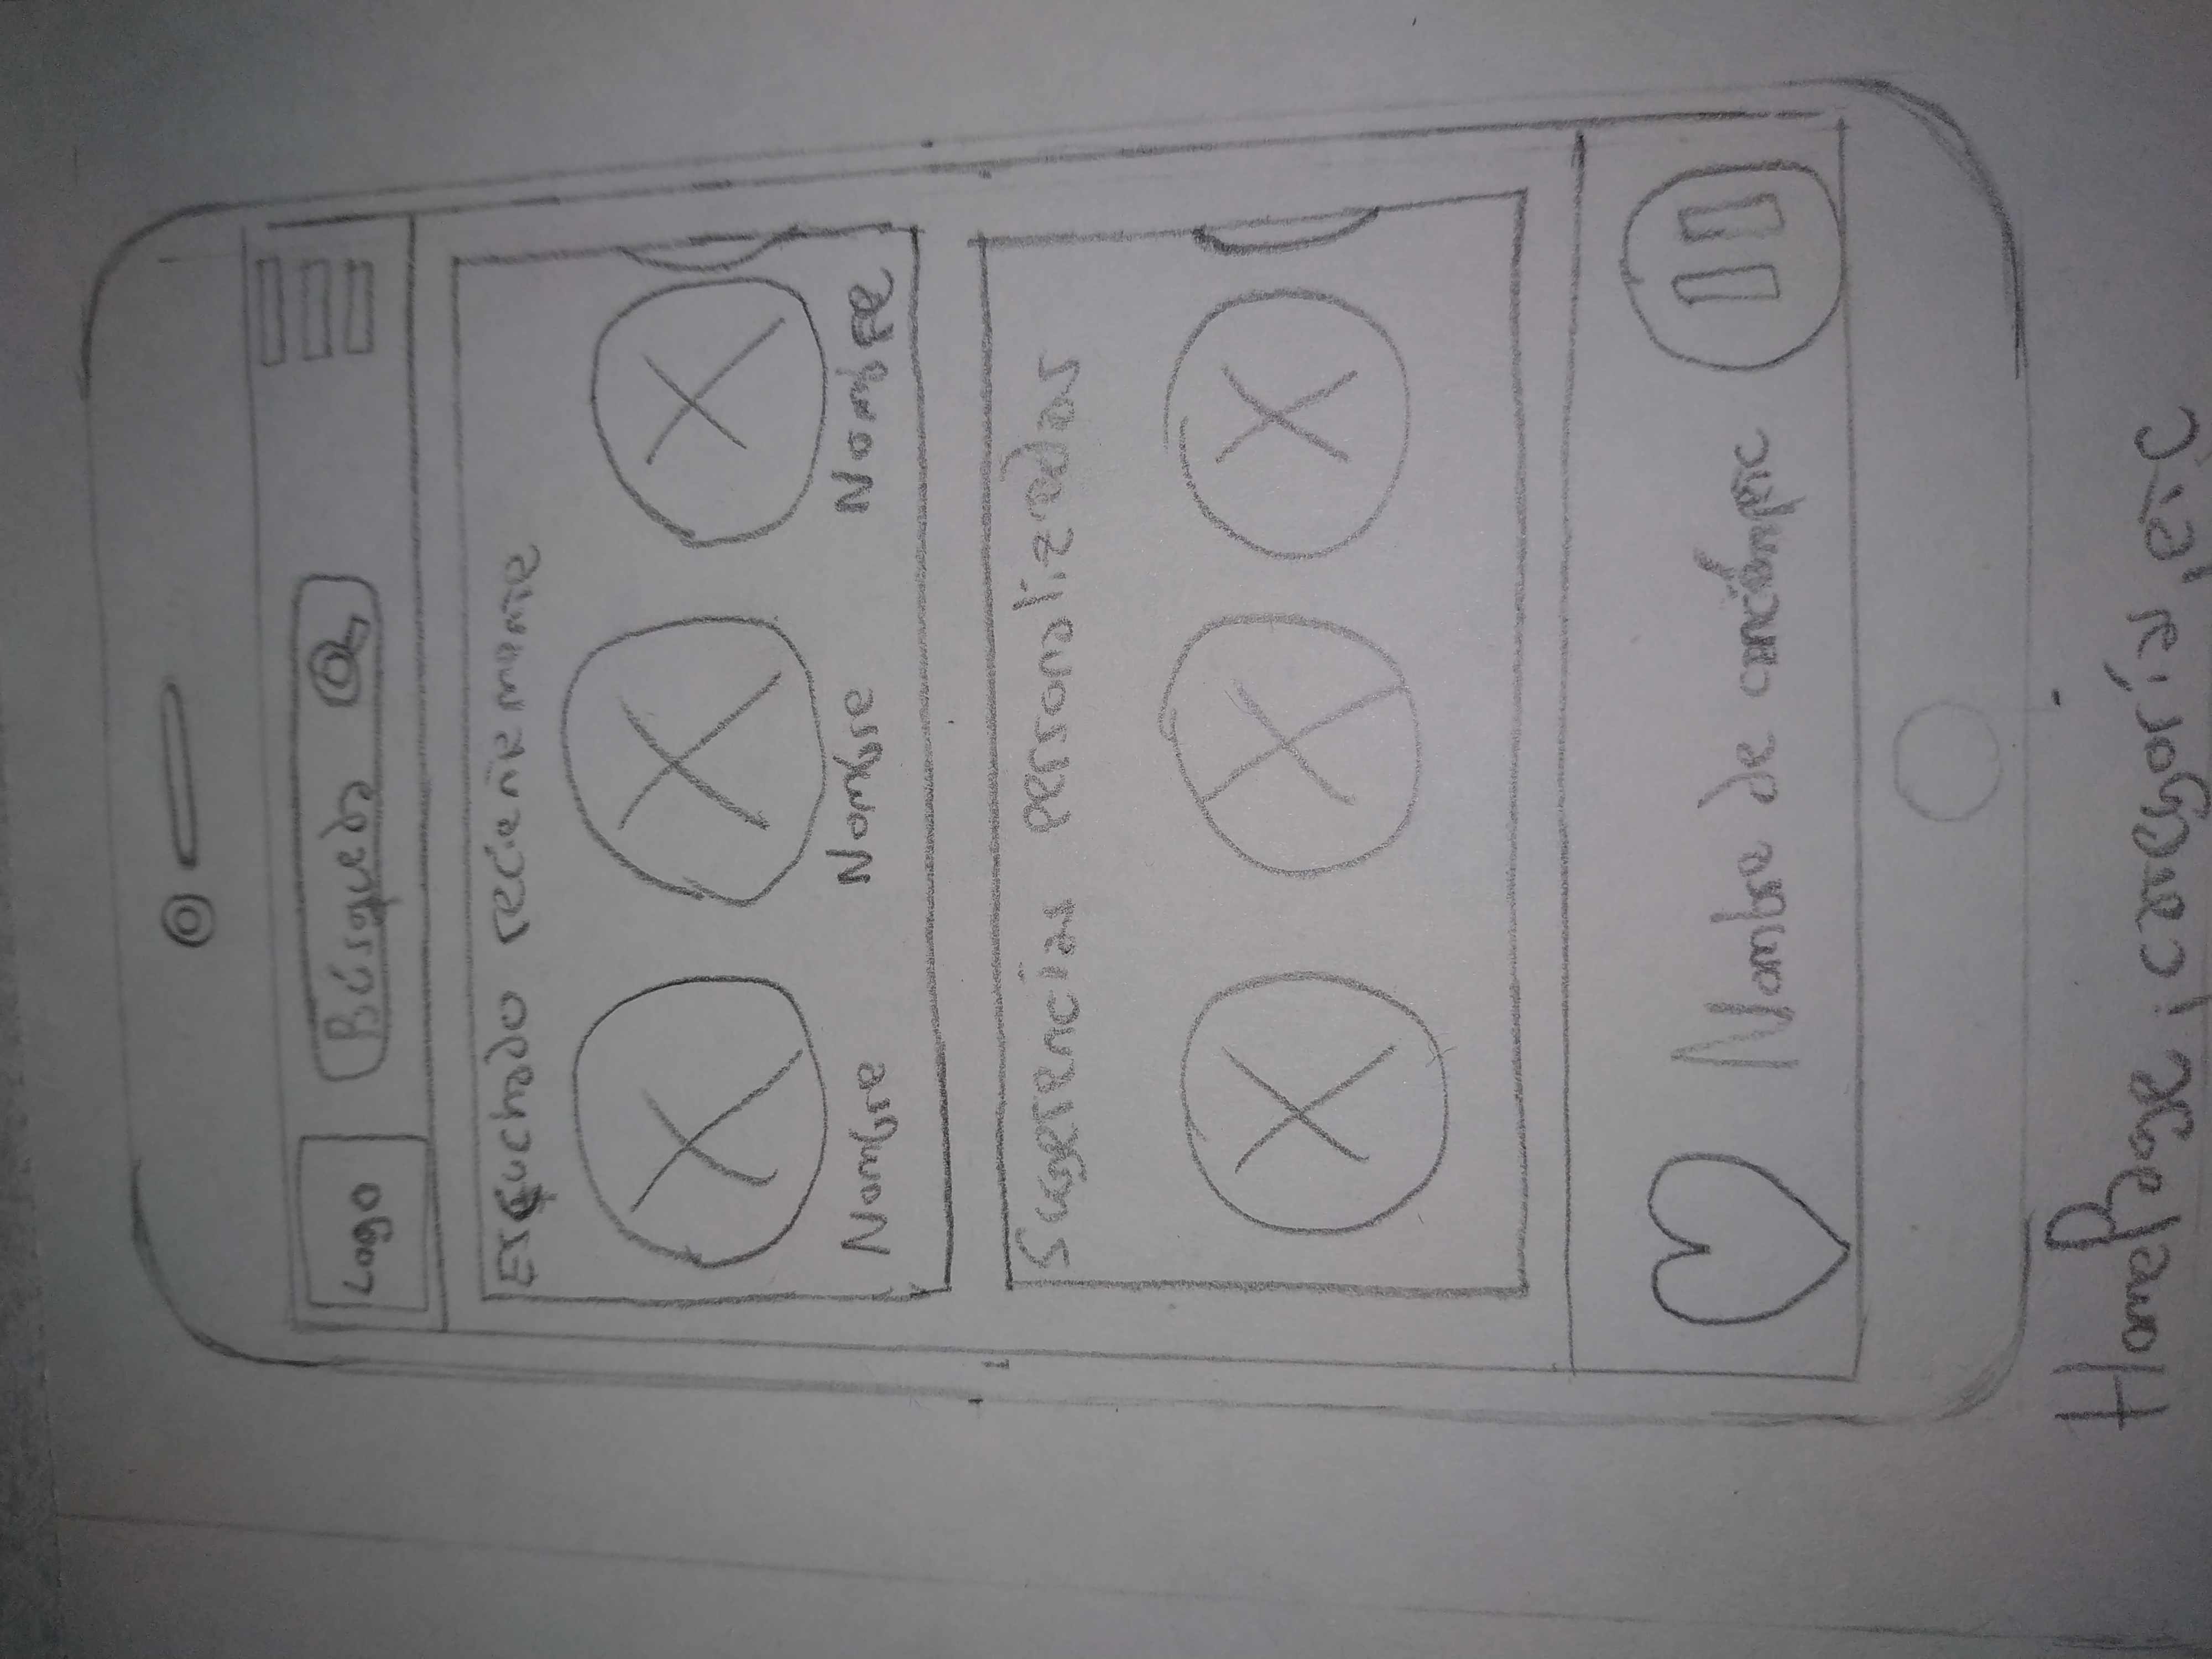 Logo
Búsqueda
Escuchado recientemente
Nombre Nombre Nombre
Sugerencias personalizadas
Nombre de canción
HomePage, categorías, etc